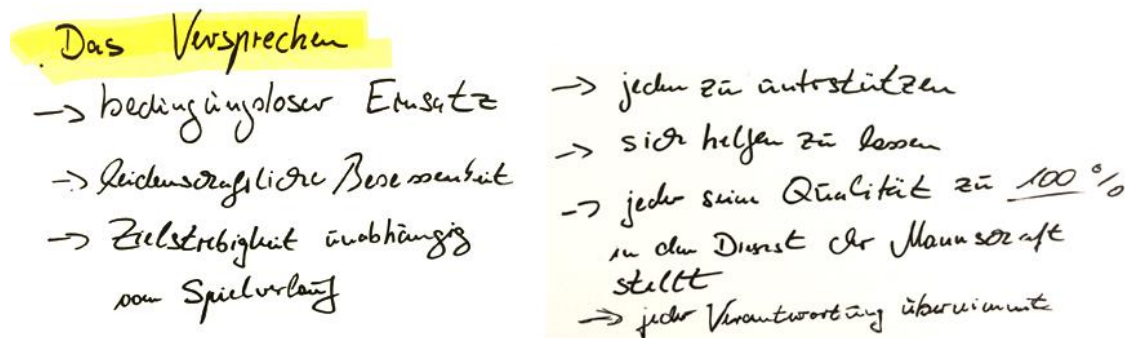 Das Versprechen
-> bedingungsloser Einsatz
-> leidenschaftliche Besessenheit
-> Zielstrebigkeit unabhängig
vom Spielverlauf
-> jeden zu unterstützen
-> sich helfen zu lassen
-> jeder seine Qualität zu 100%
in den Dienst der Mannschaft
stellt
-> jeder Verantwortung übernimmt